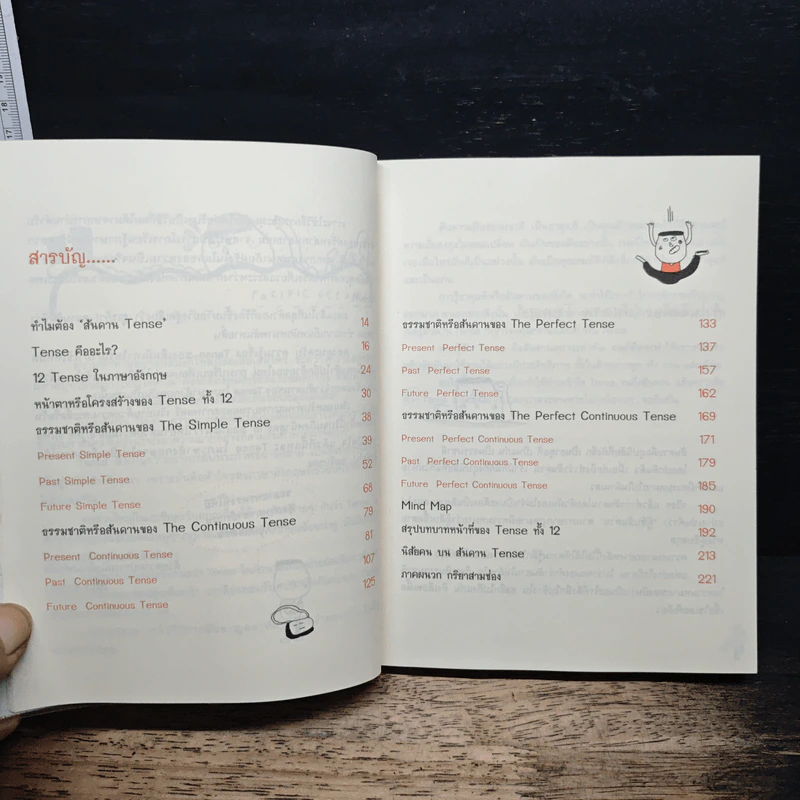 สารบัญ......
ทำไมต้อง 'สันดาน Tense' 14
Tense คืออะไร? 16
12 Tense ในภาษาอังกฤษ 24
หน้าตาหรือโครงสร้างของ Tense ทั้ง 12 30
ธรรมชาติหรือสันดานของ The Simple Tense 38
Present Simple Tense 39
Past Simple Tense 52
Future Simple Tense 68
ธรรมชาติหรือสันดานของ The Continuous Tense 79
Present Continuous Tense 81
Past Continuous Tense 107
Future Continuous Tense 125
ธรรมชาติหรือสันดานของ The Perfect Tense 133
Present Perfect Tense 137
Past Perfect Tense 157
Future Perfect Tense 162
ธรรมชาติหรือสันดานของ The Perfect Continuous Tense 169
Present Perfect Continuous Tense 171
Past Perfect Continuous Tense 179
Future Perfect Continuous Tense 185
Mind Map 190
สรุปบทบาทหน้าที่ของ Tense ทั้ง 12 192
นิสัยคน บน สันดาน Tense 213
ภาคผนวก กริยาสามช่อง 221
17 18 19